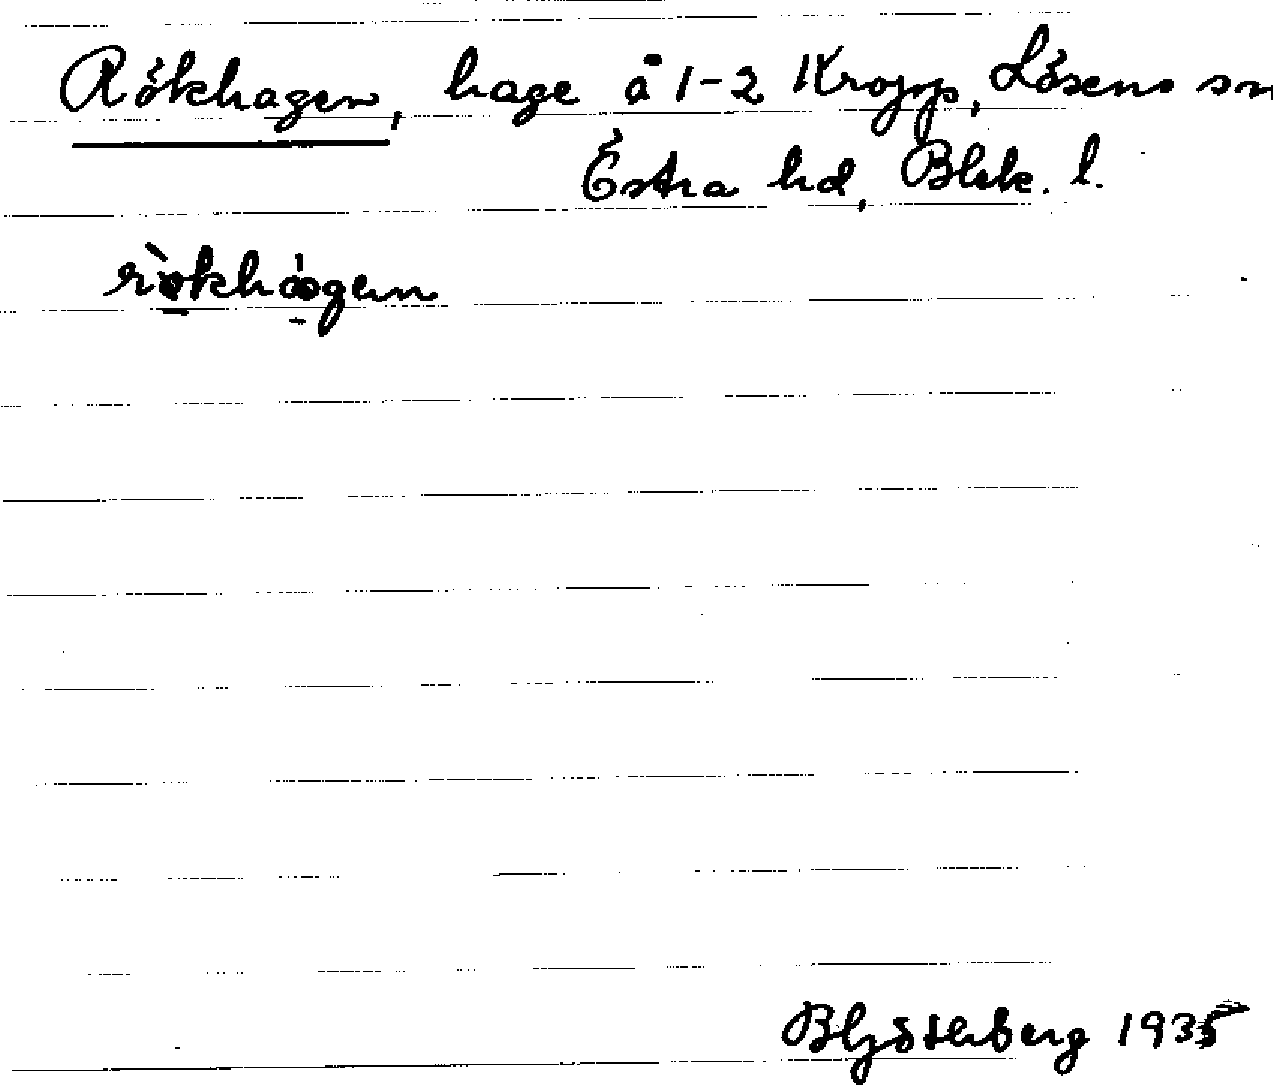 Rökhagen, hage å 1-2 Kropp, Lösens sn
Östra hd, Blek. l.
Bhj Österberg 1935